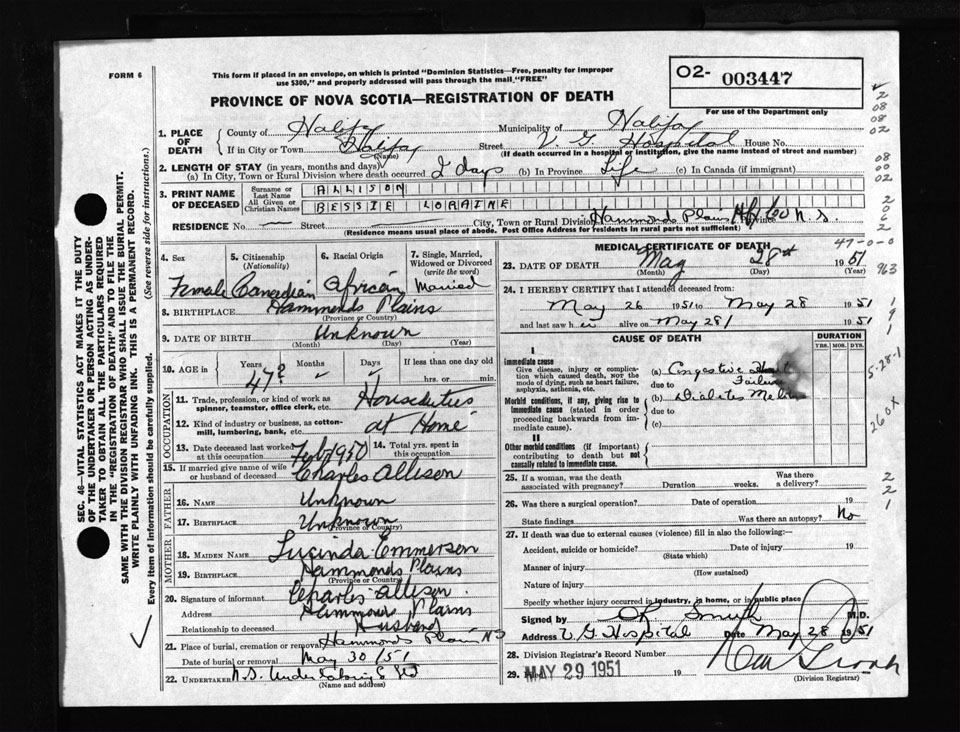 FORM 6
This form if placed in an envelope, on which is printed "Dominion Statistics—Free, penalty for improper
use $300," and properly addressed will pass through the mail "FREE"
O2- 003447
For use of the Department only
PROVINCE OF NOVA SCOTIA—REGISTRATION OF DEATH
1. PLACE OF DEATH
County of Halifax Municipality of Halifax
If in City or Town Halifax Street V. G. Hospital House No.
(Name) (If death occurred in a hospital or institution, give the name instead of street and number)
2. LENGTH OF STAY (in years, months and days)
(a) In City, Town or Rural Division where death occurred 2 days (b) In Province Life (c) In Canada (if immigrant)
3. PRINT NAME OF DECEASED
Surname or Last Name ALLISON
All Given or Christian Names BESSIE LORAINE
RESIDENCE No. — Street — City, Town or Rural Division Hammonds Plains Hfx Co N.S. Province
(Residence means usual place of abode. Post Office Address for residents in rural parts not sufficient)
4. Sex
Female
5. Citizenship (Nationality)
Canadian
6. Racial Origin
African
7. Single, Married, Widowed or Divorced (write the word)
Married
8. BIRTHPLACE Hammonds Plains
(Province or Country)
9. DATE OF BIRTH Unknown
(Month) (Day) (Year)
10. AGE in Years Months Days If less than one day old
47? hrs. or min.
OCCUPATION
11. Trade, profession or kind of work as spinner, teamster, office clerk, etc. Houseduties
12. Kind of industry or business, as cotton-mill, lumbering, bank, etc. at Home
13. Date deceased last worked at this occupation Feb 1950
14. Total yrs. spent in this occupation
15. If married give name of wife or husband of deceased Charles Allison
FATHER
16. NAME Unknown
17. BIRTHPLACE Unknown
(Province or Country)
MOTHER
18. MAIDEN NAME Lucinda Emmerson
19. BIRTHPLACE Hammonds Plains
(Province or Country)
20. Signature of informant Charles Allison
Address Hammonds Plains
Relationship to deceased Husband
21. Place of burial, cremation or removal Hammonds Plains NS
Date of burial or removal May 30/51
22. UNDERTAKER N.S. Undertaking
(Name and address)
MEDICAL CERTIFICATE OF DEATH
23. DATE OF DEATH May 28th 1951
(Month) (Day) (Year)
24. I HEREBY CERTIFY that I attended deceased from:
May 26 1951 to May 28 1951
and last saw her alive on May 28/ 1951
CAUSE OF DEATH
DURATION
YRS. MOS. DYS.
I
Immediate cause
Give disease, injury or complication which caused death, NOT the mode of dying, such as heart failure, asphyxia, asthenia, etc.
(a) Congestive Heart Failure
due to
Morbid conditions, if any, giving rise to immediate cause (stated in order proceeding backwards from immediate cause).
(b) Diabetes
due to
(c)
II
Other morbid conditions (if important) contributing to death but not causally related to immediate cause.
25. If a woman, was the death associated with pregnancy? Duration weeks. Was there a delivery?
26. Was there a surgical operation? Date of operation 19
State findings Was there an autopsy? No
27. If death was due to external causes (violence) fill in also the following:
Accident, suicide or homicide? Date of injury 19
(State which)
Manner of injury
(How sustained)
Nature of injury
Specify whether injury occurred in industry, in home, or in public place
Signed by Smith M.D.
Address V G Hospital Date May 28 1951
28. Division Registrar's Record Number
29. MAY 29 1951
(Division Registrar)
SEC. 46—VITAL STATISTICS ACT MAKES IT THE DUTY
OF THE UNDERTAKER OR PERSON ACTING AS UNDER-
TAKER TO OBTAIN ALL THE PARTICULARS REQUIRED
IN THE "REGISTRATION OF DEATH" AND TO FILE THE
SAME WITH THE DIVISION REGISTRAR WHO SHALL ISSUE THE BURIAL PERMIT.
WRITE PLAINLY WITH UNFADING INK. THIS IS A PERMANENT RECORD.
Every item of information should be carefully supplied. (See reverse side for instructions.)
2
08
08
02
08
00
02
2
0
6
2
47-0-0
963
1
9
1
5-28-1
260X
2
2
1